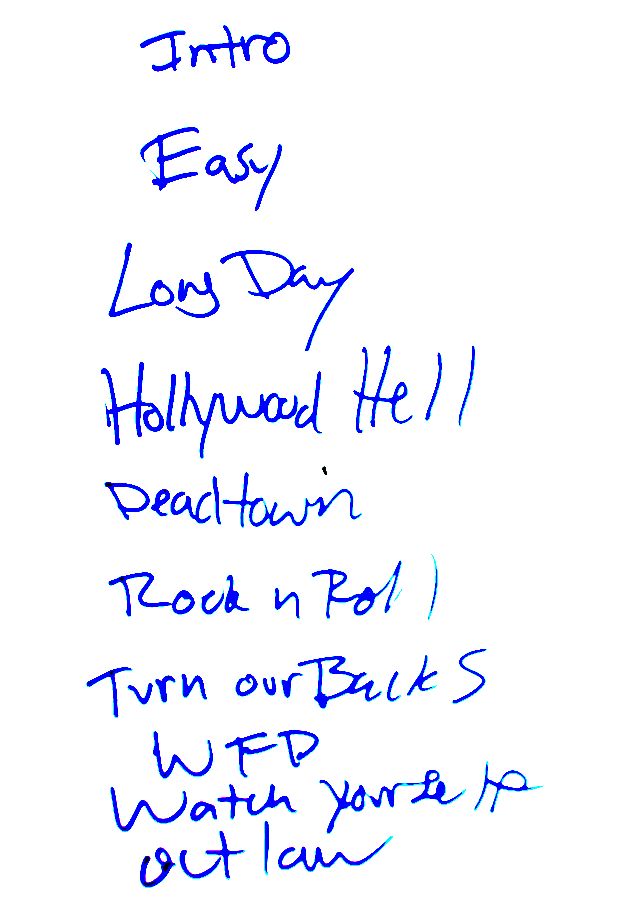 Intro
Easy
Long Day
Hollywood Hell
Deadtown
Rock n Roll
Turn our Backs
WFD
Watch yourself
outlaw